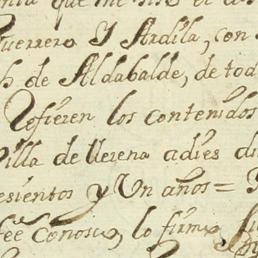 que me hiso el
Guerrero Y Ardila, con
de Aldabalde, de tod
Refieren los contenidos
Villa de Llerena a dies di
esientos y Un años =
fee Conosco, lo firmo